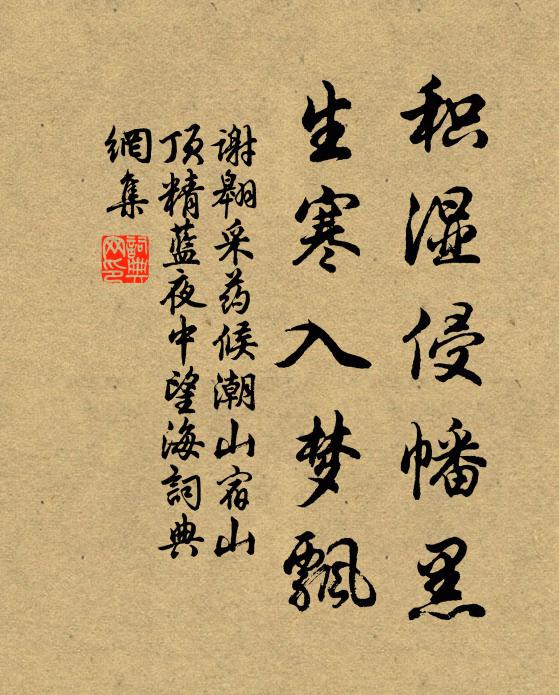 积湿侵幡黑
生寒入梦飘
谢翱采药候潮山宿山
顶精蓝夜中望海詞典
網集
詞典
网印